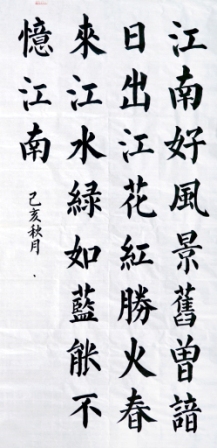 江南好風景舊曾諳
日出江花紅勝火春
來江水綠如藍能不
憶江南
己亥秋月